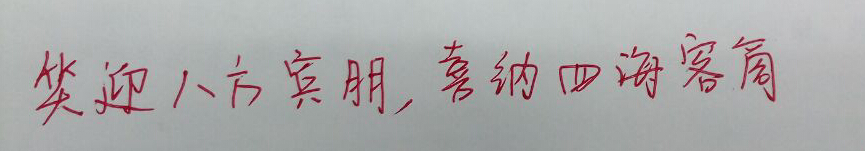 笑迎八方宾朋,喜纳四海客商